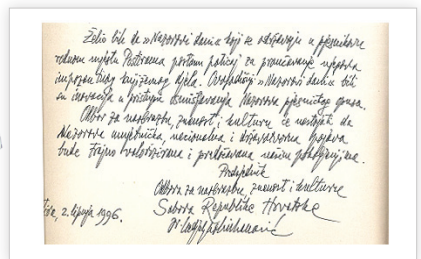 Želio bih da "Nazorovi dani" koji se održavaju u pjesnikovu
rodnom mjestu Postirama postanu poticaj za proučavanje njegova
književnog djela. "Nazorovi dani" bili
su inovacija u Nazorova pjesničkog opusa.
Odbor za naobrazbu, znanost i kulturu će nastojati da
Nazorova umjetnička, nacionalna i državotvorna pojava
bude trajno valorizirana i predstavljena našim pokoljenjima.
Predsjednik
Odbora za naobrazbu, znanost i kulturu
Sabora Republike Hrvatske
2. lipnja 1996.